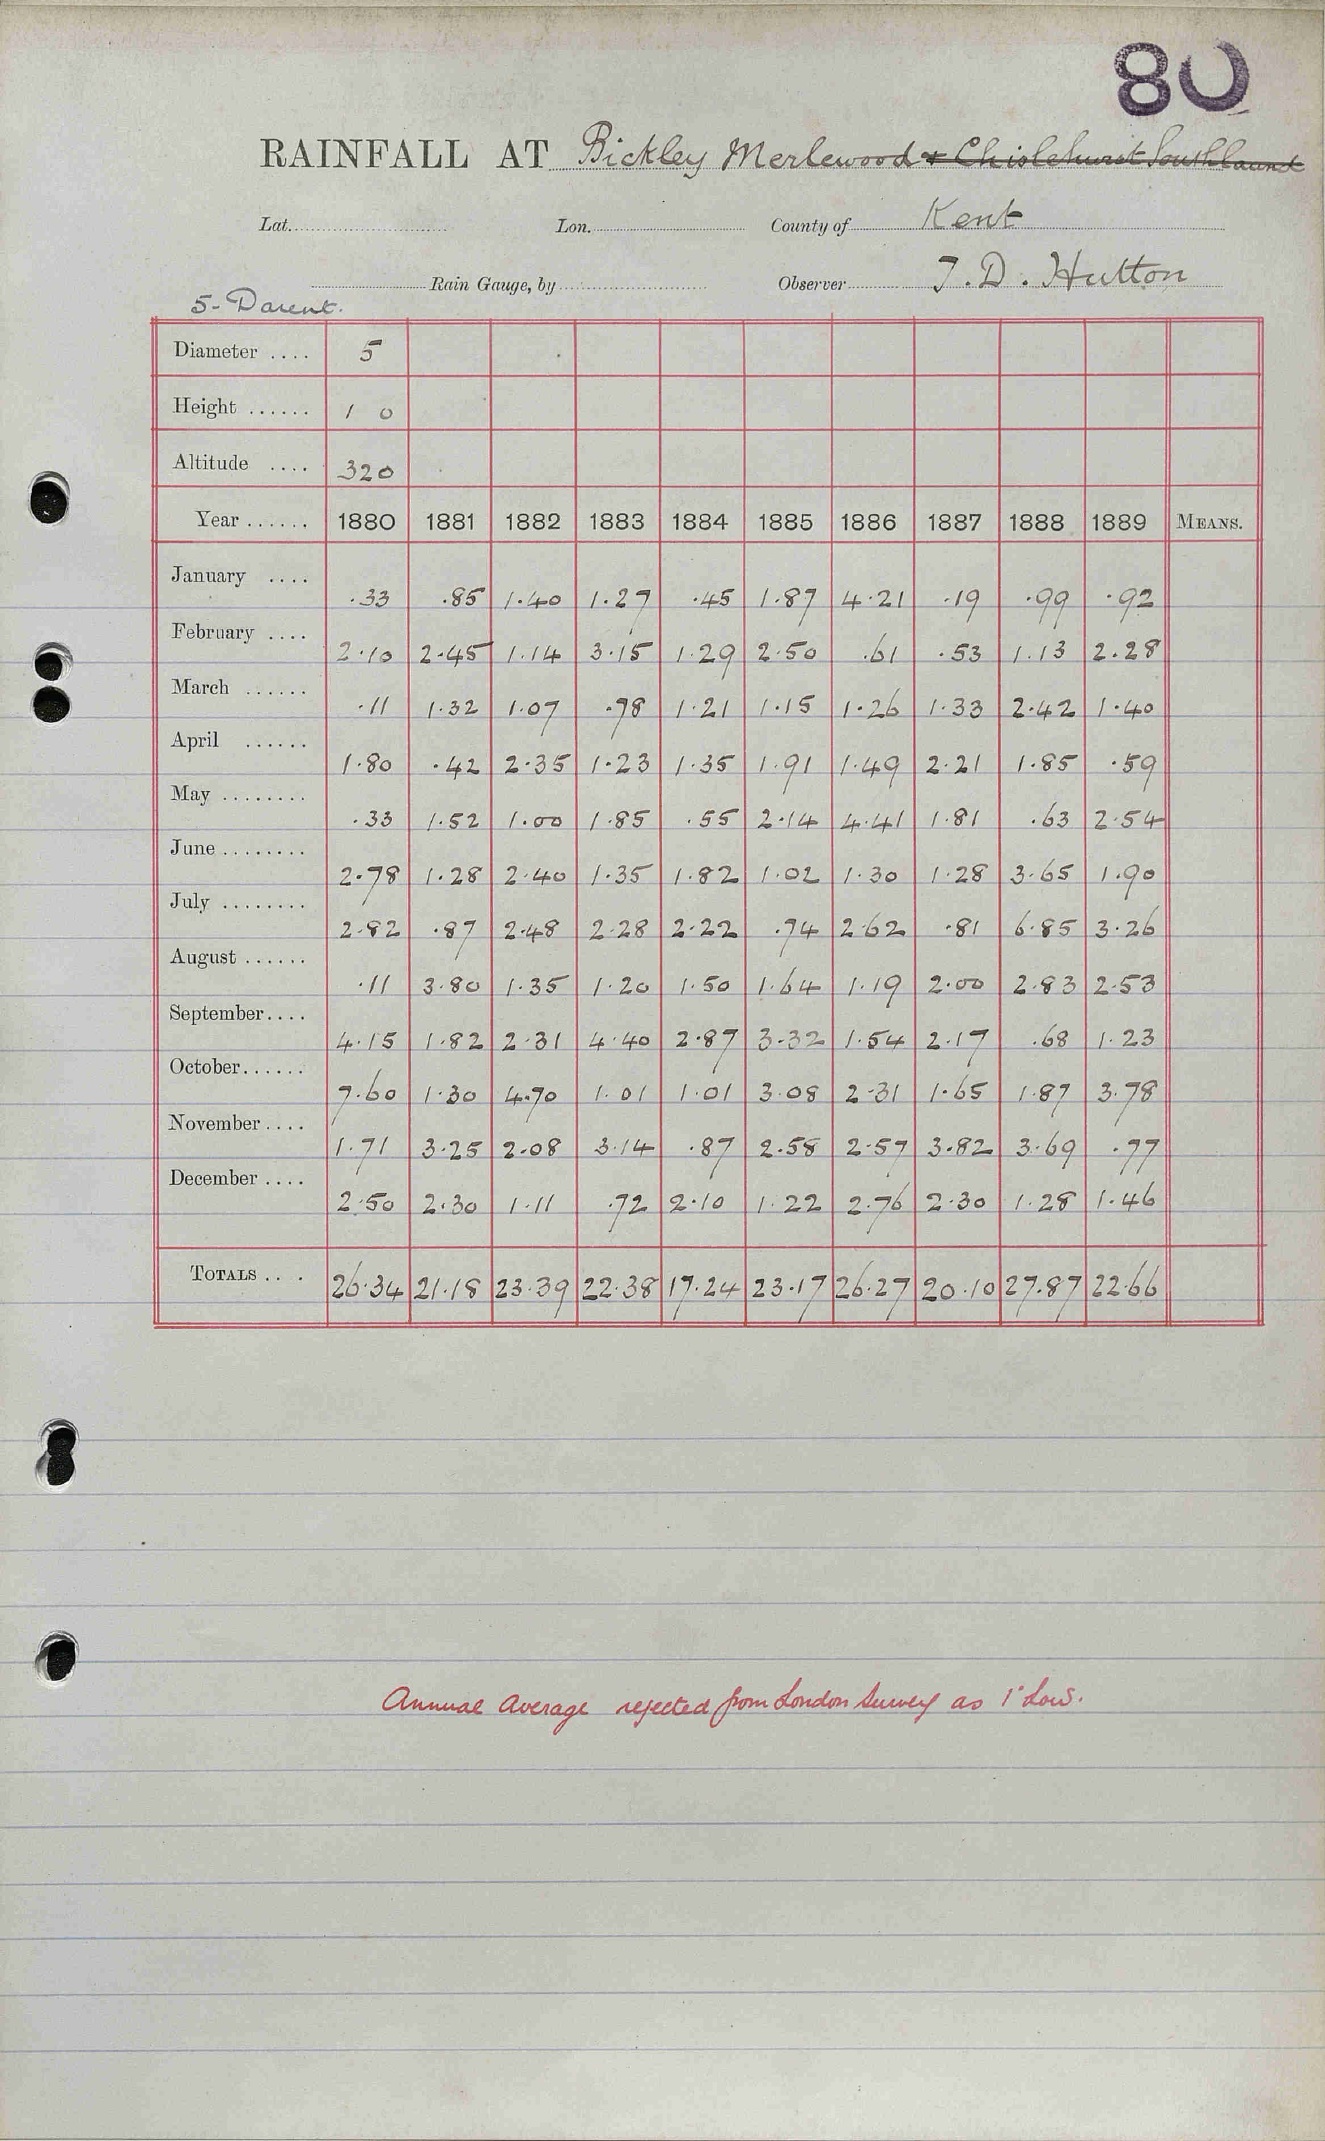 80
RAINFALL AT Bickley Merlewood & Chislehurst Southlaund
Lat. Lon. County of Kent
Rain Gauge, by Observer T. D. Hutton
5-Darent.
Diameter .... 5
Height ...... 1 0
Altitude .... 320
Year ...... 1880 1881 1882 1883 1884 1885 1886 1887 1888 1889 MEANS.
January .... .33 .85 1.40 1.27 .45 1.87 4.21 .19 .99 .92
February .... 2.10 2.45 1.14 3.15 1.29 2.50 .61 .53 1.13 2.28
March ...... .11 1.32 1.07 .78 1.21 1.15 1.26 1.33 2.42 1.40
April ...... 1.80 .42 2.35 1.23 1.35 1.91 1.49 2.21 1.85 .59
May ........ .33 1.52 1.00 1.85 .55 2.14 4.41 1.81 .63 2.54
June ........ 2.78 1.28 2.40 1.35 1.82 1.02 1.30 1.28 3.65 1.90
July ........ 2.82 .87 2.48 2.28 2.22 .74 2.62 .81 6.85 3.26
August ...... .11 3.80 1.35 1.20 1.50 1.64 1.19 2.00 2.83 2.53
September .... 4.15 1.82 2.31 4.40 2.87 3.32 1.54 2.17 .68 1.23
October ...... 7.60 1.30 4.70 1.01 1.01 3.08 2.31 1.65 1.87 3.78
November .... 1.71 3.25 2.08 3.14 .87 2.58 2.57 3.82 3.69 .77
December .... 2.50 2.30 1.11 .72 2.10 1.22 2.76 2.30 1.28 1.46
TOTALS .... 26.34 21.18 23.39 22.38 17.24 23.17 26.27 20.10 27.87 22.66
Annual average rejected from London Survey as 1" Low.